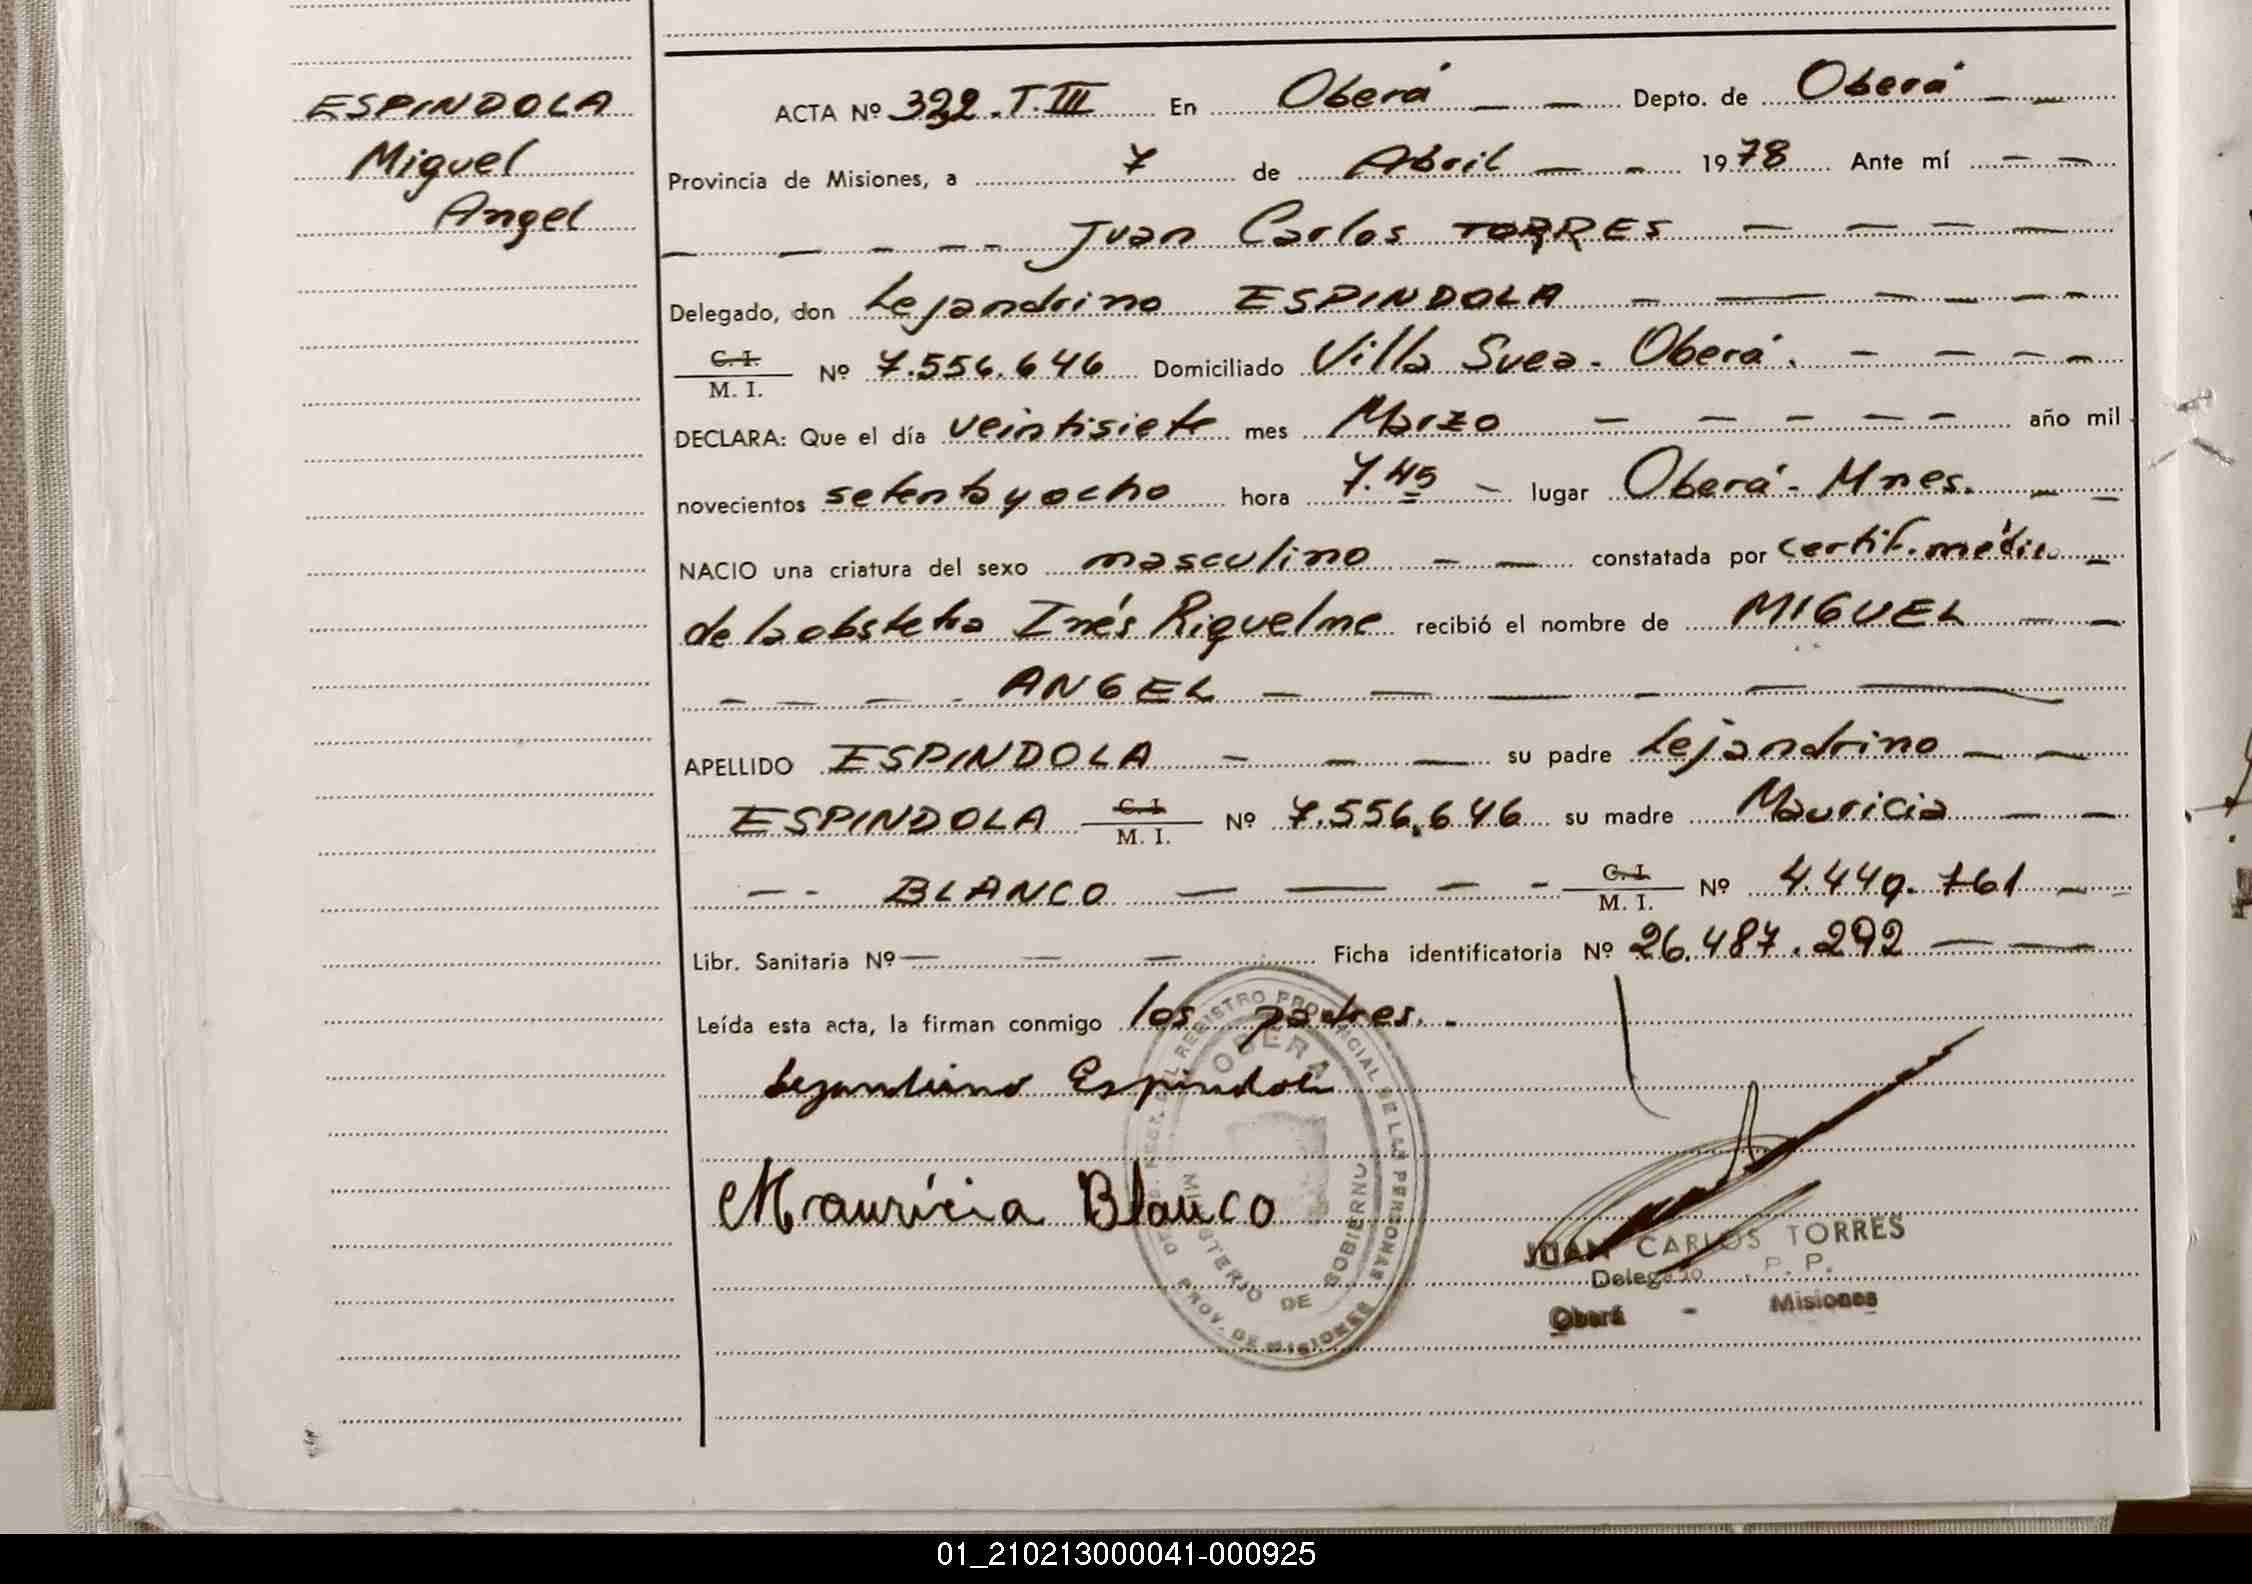 ESPINDOLA
Miguel
Angel
ACTA Nº 322. T. III En Oberá Depto. de Oberá
Provincia de Misiones, a 7 de Abril 1978 Ante mí
Juan Carlos TORRES
Delegado, don Lejandrino ESPINDOLA
C. I. / M. I. Nº 7.556.646 Domiciliado Villa Svea - Oberá.
DECLARA: Que el día veintisiete mes Marzo año mil
novecientos setenta y ocho hora 7.45 lugar Oberá - Mnes.
NACIO una criatura del sexo masculino constatada por certif. médico
de la obstetra Inés Riquelme recibió el nombre de MIGUEL
ANGEL
APELLIDO ESPINDOLA su padre Lejandrino
ESPINDOLA C. I. / M. I. Nº 7.556.646 su madre Mauricia
BLANCO C. I. / M. I. Nº 4.449.761
Libr. Sanitaria Nº Ficha identificatoria Nº 26.487.292
Leída esta acta, la firman conmigo los padres.
Lejandrino Espindola
Mauricia Blanco
REGISTRO PROVINCIAL DE LAS PERSONAS
OBERA
MINISTERIO DE GOBIERNO
PROV. DE MISIONES
JUAN CARLOS TORRES
Delegado R. P. P.
Oberá - Misiones
01_210213000041-000925